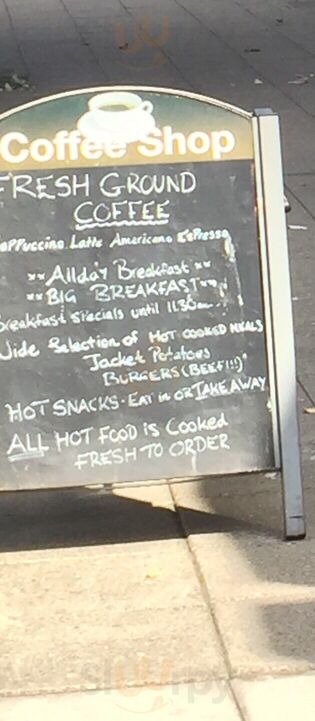 Coffee Shop
FRESH GROUND
COFFEE
Cappuccino Latte Americano Espresso
** Allday Breakfast **
** BIG BREAKFAST **
Breakfast Specials until 11.30am
Wide Selection of HOT COOKED MEALS
Jacket Potatoes
BURGERS (BEEF!!!)
HOT SNACKS · EAT in OR TAKE AWAY
ALL HOT FOOD is Cooked
FRESH TO ORDER